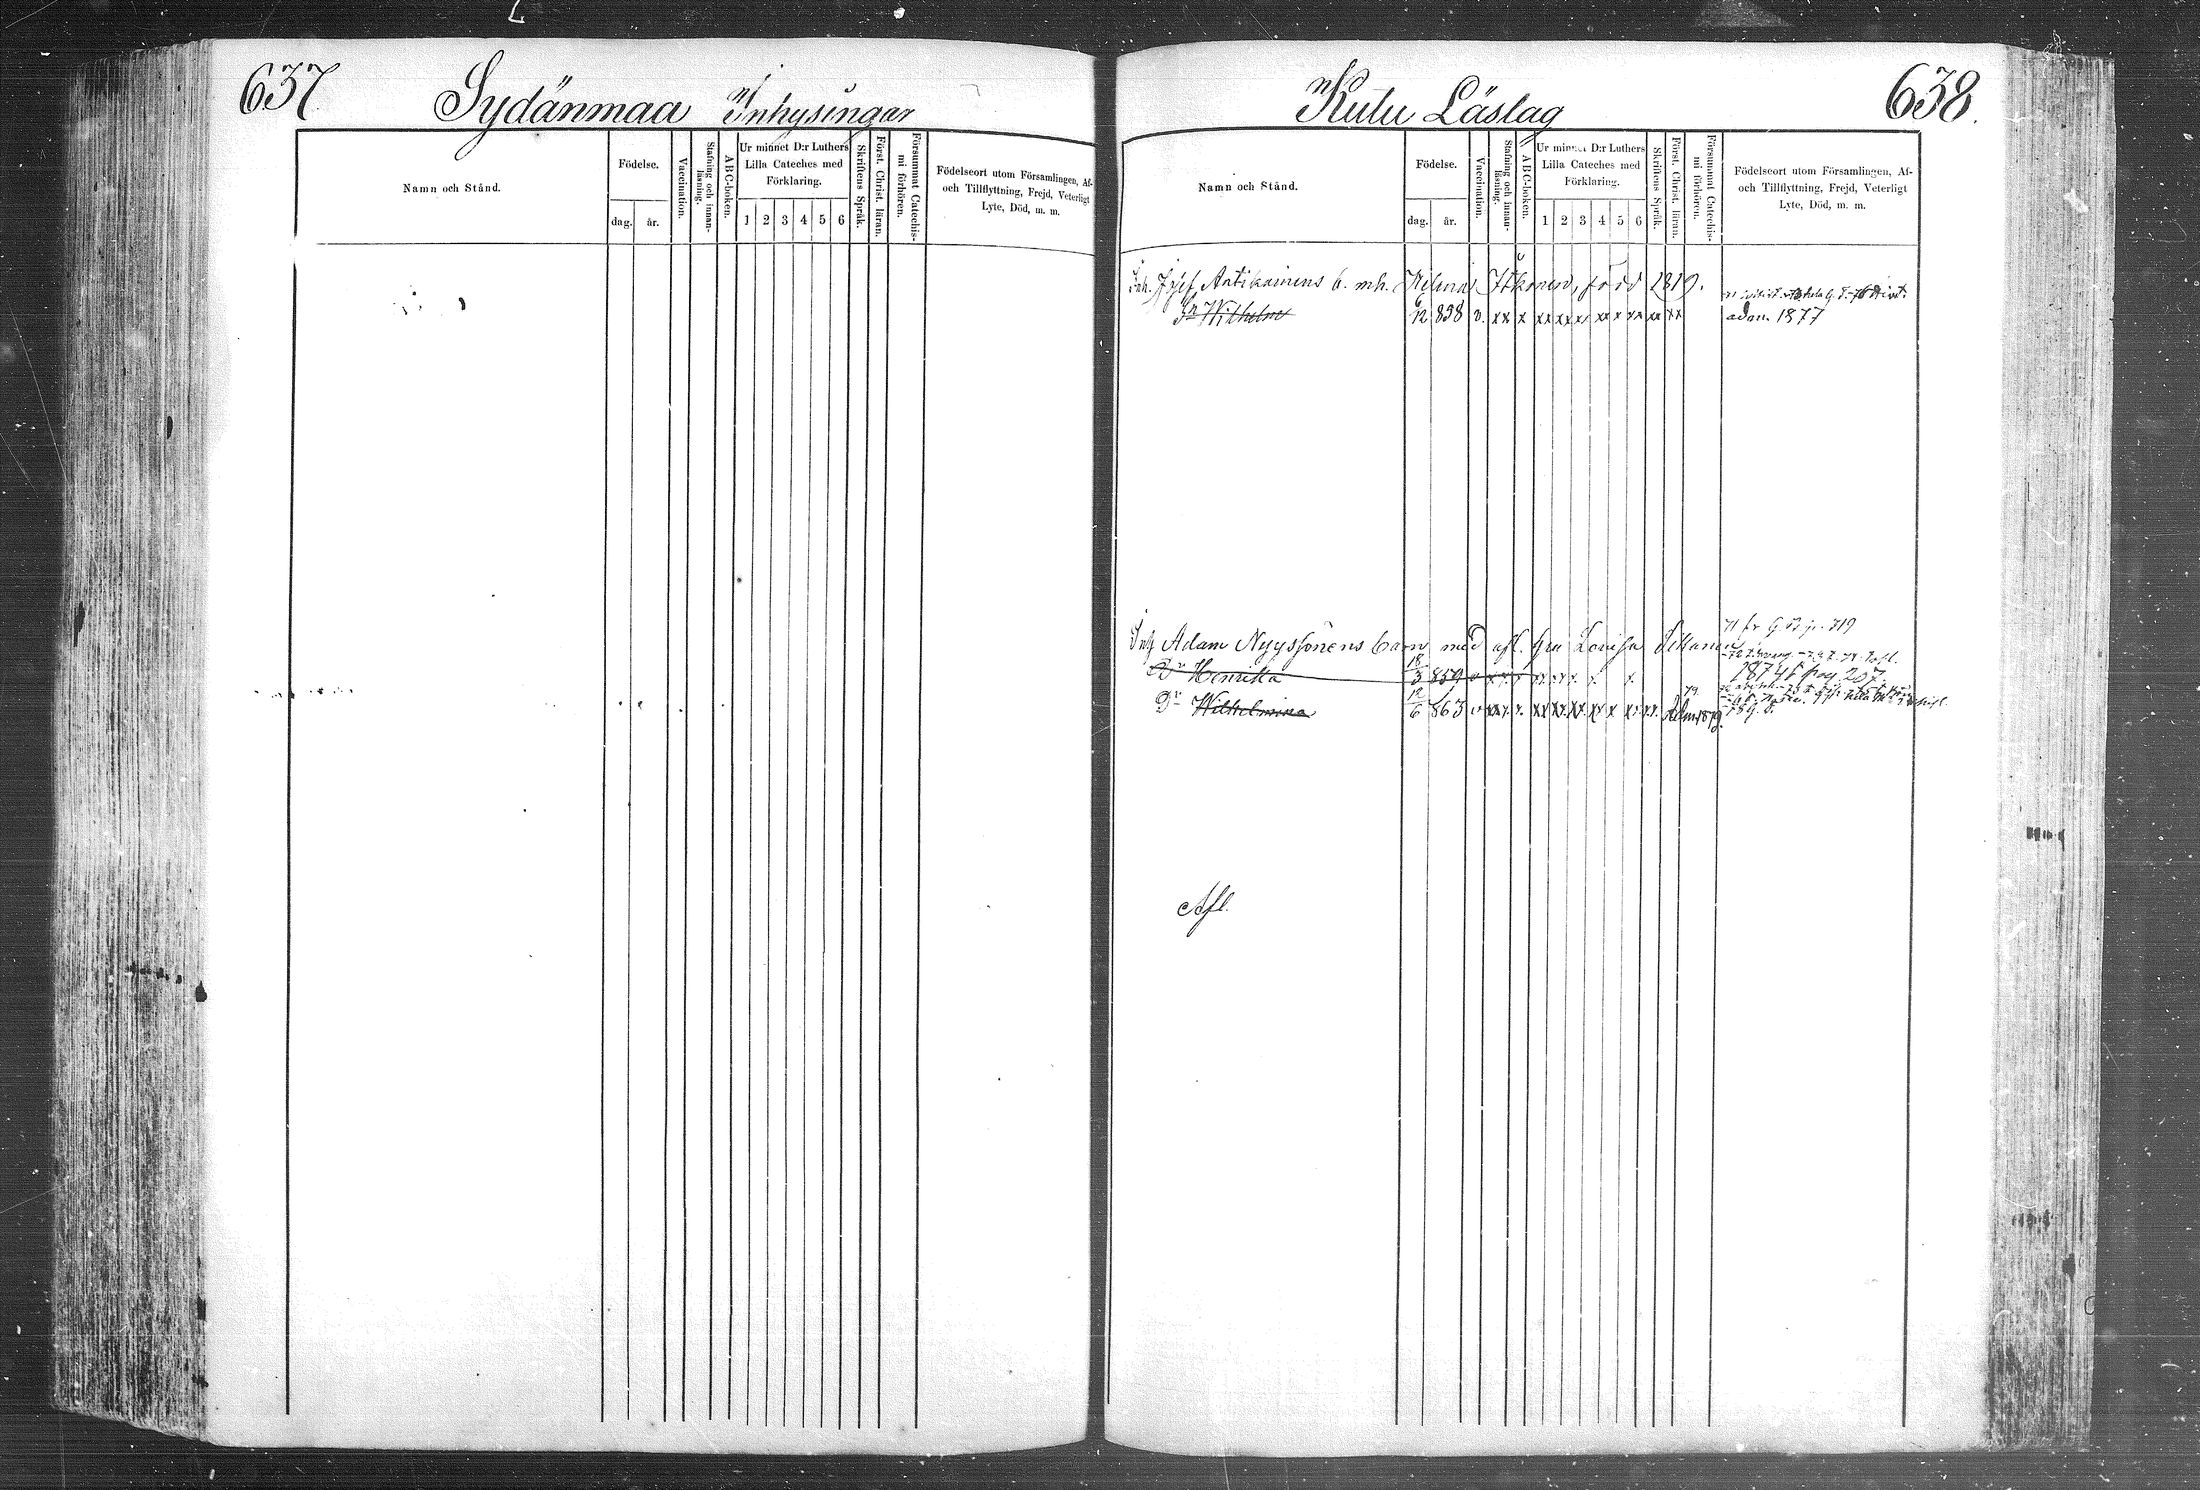 637
Sydänmaa Inhysingar
Namn och Stånd.
Födelse.
dag.
år.
Vaccination.
Stafning och innan-läsning.
ABC-boken.
Ur minnet D:r Luthers
Lilla Cateches med
Förklaring.
1 2 3 4 5 6
Skriftens Språk.
Först. Christ. läran.
Försummat Catechis-
mi förhören.
Födelseort utom Församlingen, Af-
och Tillflyttning, Frejd, Veterligt
Lyte, Död, m. m.
Kutu Läslag
638.
Namn och Stånd.
Födelse.
dag.
år.
Vaccination.
Stafning och innan-läsning.
ABC-boken.
Ur minnet D:r Luthers
Lilla Cateches med
Förklaring.
1 2 3 4 5 6
Skriftens Språk.
Först. Christ. läran.
Försummat Catechis-
mi förhören.
Födelseort utom Församlingen, Af-
och Tillflyttning, Frejd, Veterligt
Lyte, Död, m. m.
Inh. Antikainens b. mh. Itkonen, född 1819.
Sn Wilhelm 12 858 v. xx x xx xxx xx x xx xx xx adm. 1877
71 fr
Inh Adam Nyyssönens barn med afl. hu Lovisa
Dr Henrika 18/3 859 v xx x xx xx x x x 1874 pag 207.
Dr Wilhelmina 12/6 863 v xxx x. xx xx xx xx x xx xx. Adm. 1879.
Afl.